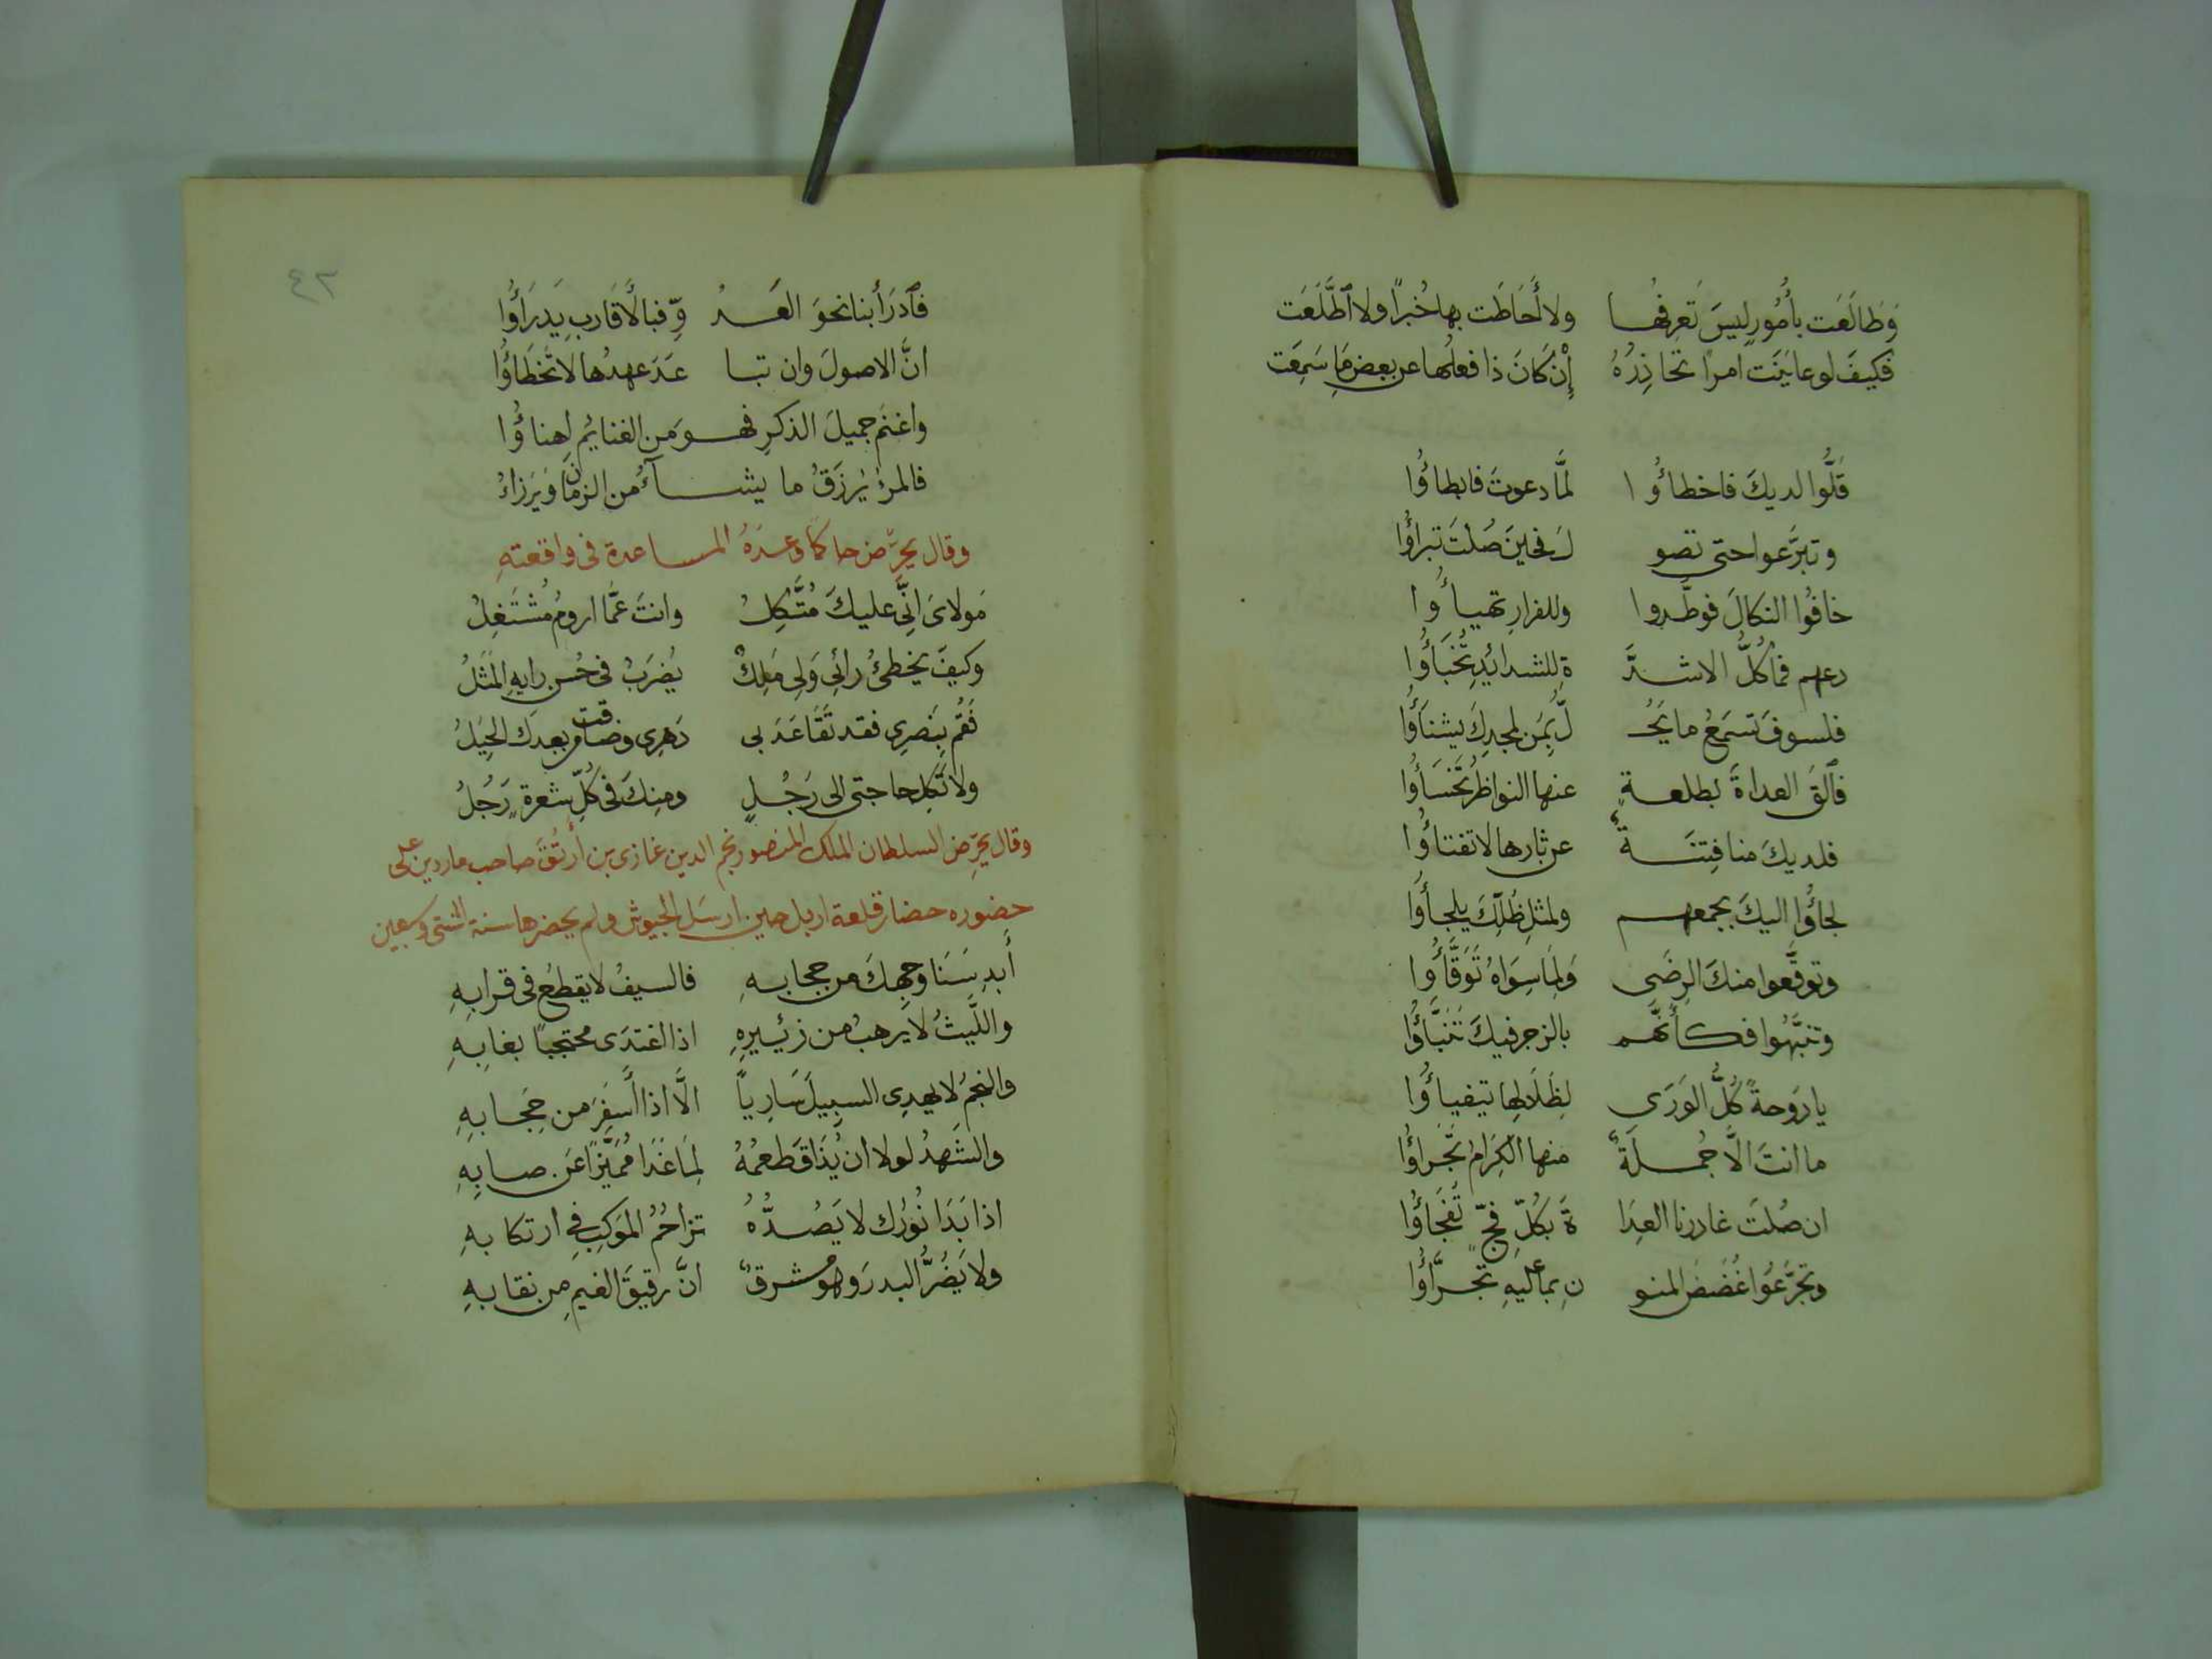 وَطَالَعَت بأُمُورٍ ليسَ تَعرِفُهـا ولا أَحَاطَت بها خُبراً ولا ٱطَّلَعَت
فكيفَ لو عايَنَت امراً تحاذِرُهُ إِنْ كَانَ ذا فعلُها عن بعضِ مَا سَمِعَت
قَلُّوا لديكَ فاخطاؤُوا لمَّا دعوتَ فابطاؤُا
وتبرَّعوا حتى تصو لَ فحينَ صُلتَ تبراؤُا
خافُوا النكالَ فوطَّدوا وللفرارِ تهيـاؤُوا
دعهم فمَا كُلُّ الاشدَّ ةِ للشدائِدِ تُخبَاؤُا
فلسوفَ تَسمَعُ ما يَحُـ لُّ بِمَن لمجدِكَ يشنَاؤُا
فٱلقَ العداةَ بطلعـةٍ عنها النواظرُ تَخسَاؤُا
فلديكَ منا فِتيَـةٌ عن ثارها لا تفتاؤُا
لجاؤُا اليكَ بجمعهم ولمثلِ ظُلِّكَ يلجاؤُا
وتوقَّعوا منكَ الرِضَى وَلِمَا سِوَاهُ تَوَقَّاؤُوا
وتنبَّهُوا فكأَنَّهم بالزجرِ فيكَ تَنَبَّاؤُا
يا دَوحةً كُلُّ الوَرَى لِظَلَالِهَا يتفياؤُا
ما انتَ الَّا جُمـلَةٌ منها الكِرَامُ تَجَراؤُا
ان صُلتَ غادرنا العِدَا ةَ بكُلِّ فجٍّ تُفجَاؤُا
وتجرَّعُوا غُصَصَ المنو نِ بما عليهِ تجرَّاؤُا
٤٢
فٱدرَأ بنا نحوَ العَـدُ وِّ فبالأَقَاربِ يَدرَاؤُا
انَّ الاصولَ وان تبـا عَدَ عهدُها لا تَخطَاؤُا
واغنَم جميلَ الذكرِ فهـو مَن الغنايُمِ اهناؤُا
فالمرءُ يُرزَقُ ما يشـآءُ من الزمَانِ ويَرزاءُ
وقال يحرِّض حاكمًا وعدَهُ المساعدة فى واقعتهِ
مَولاىَ انِّى عليكَ مُتَّكِلُ وانتَ عمَّا ارومُ مُشتَغِلُ
وكيفَ يخطئُ رائِى وَلى مَلِكٌ يُضرَبُ فى حُسنِ رايهِ المَثَلُ
فَقُم بِنَصرِى فقد تَقَاعَدَ بى دَهرِى وضاقت بعبدِك الحِيَلُ
ولا تَكِل حاجتى الى رَجُـلٍ ومنِكَ فى كُلِّ شعرةٍ رَجُلُ
وقال يحرِّض السلطان الملك المنصور نجم الدين غازى بن أُرتُق صاحب ماردين على
حضوره حصار قلعة اربل حين ارسَل الجيوش ولم يحضرها سنة اثنتى وسبعين
أَبدِ سَنَا وجهِكَ من حجابـهِ فالسيفُ لا يقطعُ فى قرابِهِ
واللَّيثُ لا يُرهبُ من زئيرِهِ اذا اغتدَى محتجبًا بغابِهِ
والنجمُ لا يهدِى السبيلَ سَارِياً الَّا اذا اسفَرَ من حِجابِهِ
والشَهدُ لولا ان يُذَاقَ طعمُهُ لمَا غَدَا مُميَّزاً عَن صابِهِ
اذا بَدَا نُورُك لا يَصُـدُّهُ تزاحُمُ المَوَكِبِ فِى ارتكابهِ
ولا يَضُرُّ البدرَ وهو مشرقٌ انَّ رقيقَ الغيمِ من نقابهِ